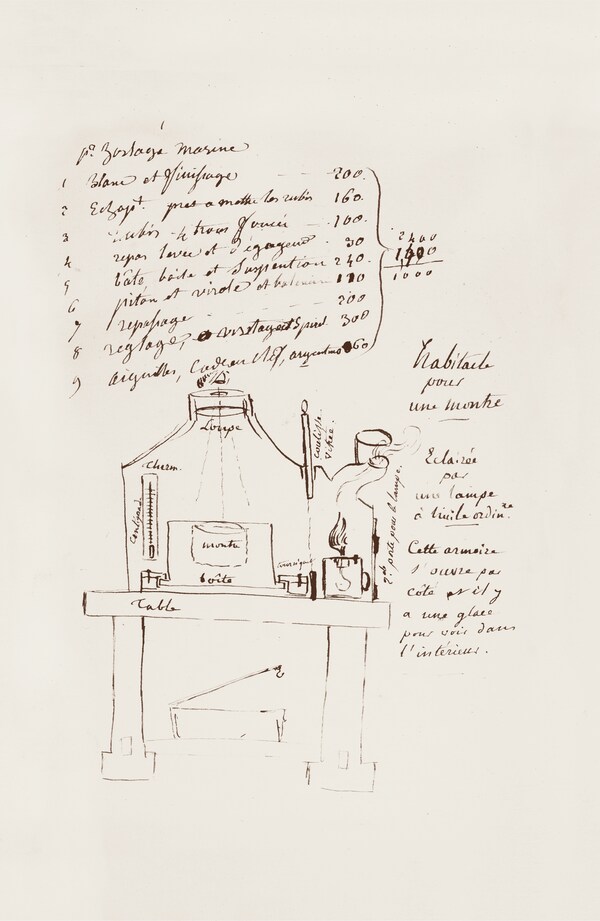 pr. horloge marine
1 Blanc et finissage 200.
2 Echapt. pret a mettre les rubis 160.
3 Rubis - 4 trous foncés 100.
4 repos levées et dégagent. 30
5 bâte, boîte et suspention 240.
6 piton et virole et balancier
7 repassage 200
8 réglage, et Spiral 300
9 aiguilles, cadran clef, 60
2400
1000
habitacle
pour
une montre
Loupe
coulisse
vitrée.
therm.
centigrade
montre
boîte
Table
pate pour la lampe.
Eclairée
par
une lampe
à huile ordinre.
Cette armoire
s'ouvre par
côté et il y
a une glace
pour voir dans
l'intérieur.